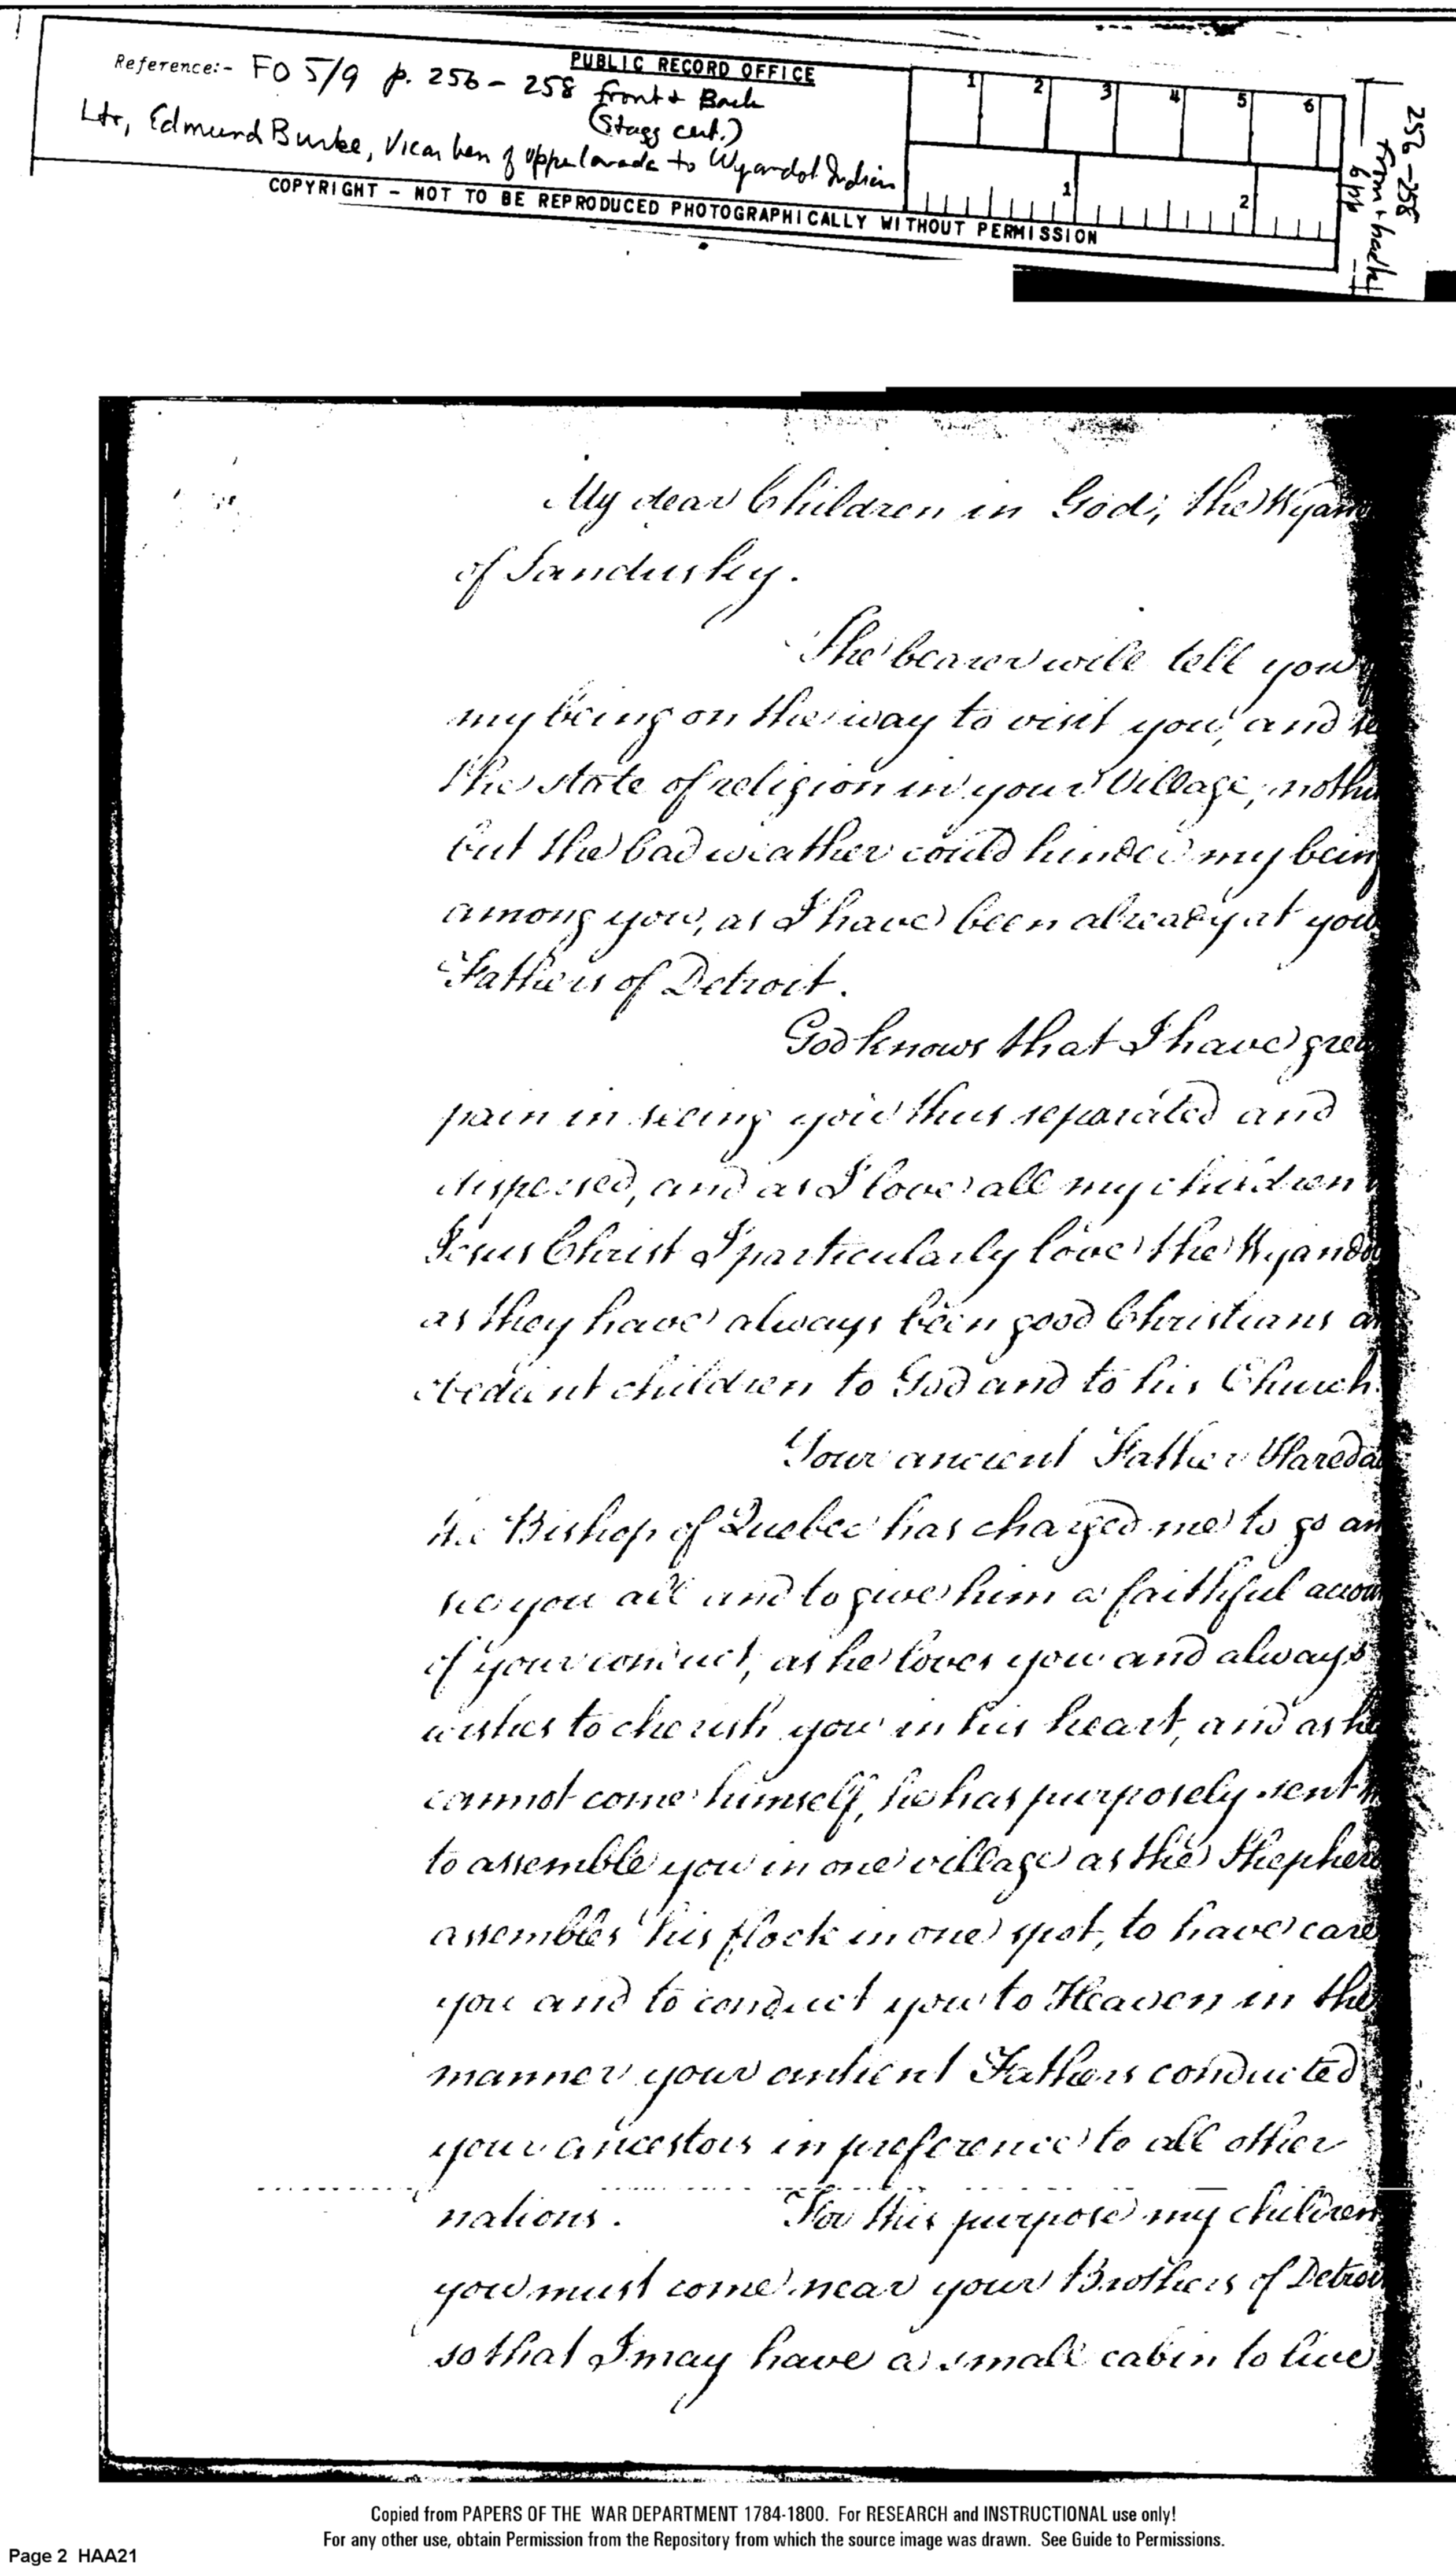 Reference:- FO 5/9 p. 256 - 258 front & Back
PUBLIC RECORD OFFICE
(Stagg cert.)
Ltr, Edmund Burke, Vicar Gen of Upper Canada to Wyandot Indian
COPYRIGHT - NOT TO BE REPRODUCED PHOTOGRAPHICALLY WITHOUT PERMISSION
1 2 3 4 5 6
1 2
256-258
front & back
6 pp
My dear Children in God; the Wyan
of Sandusky.
The bearer will tell you
my being on the way to visit you, and se
the state of religion in your Village, nothi
but the bad weather could hinder my bein
among you, as I have been already at you
Fathers of Detroit.
God knows that I have grea
pain in seeing you thus separated and
dispersed, and as I love all my children
Jesus Christ I particularly love the Wyando
as they have always been good Christians a
obedient children to God and to his Church.
Your ancient Father
the Bishop of Quebec has charged me to go an
see you all and to give him a faithful accou
of your conduct, as he loves you and always
wishes to cherish you in his heart, and as he
cannot come himself, he has purposely sent m
to assemble you in one village as the Shepher
assembles his flock in one spot, to have care
you and to conduct you to Heaven in the
manner your antient Fathers conducted
your ancestors in preference to all other
nations. For this purpose my children
you must come near your Brothers of Detroi
so that I may have a small cabin to live
Copied from PAPERS OF THE WAR DEPARTMENT 1784-1800. For RESEARCH and INSTRUCTIONAL use only!
For any other use, obtain Permission from the Repository from which the source image was drawn. See Guide to Permissions.
Page 2 HAA21